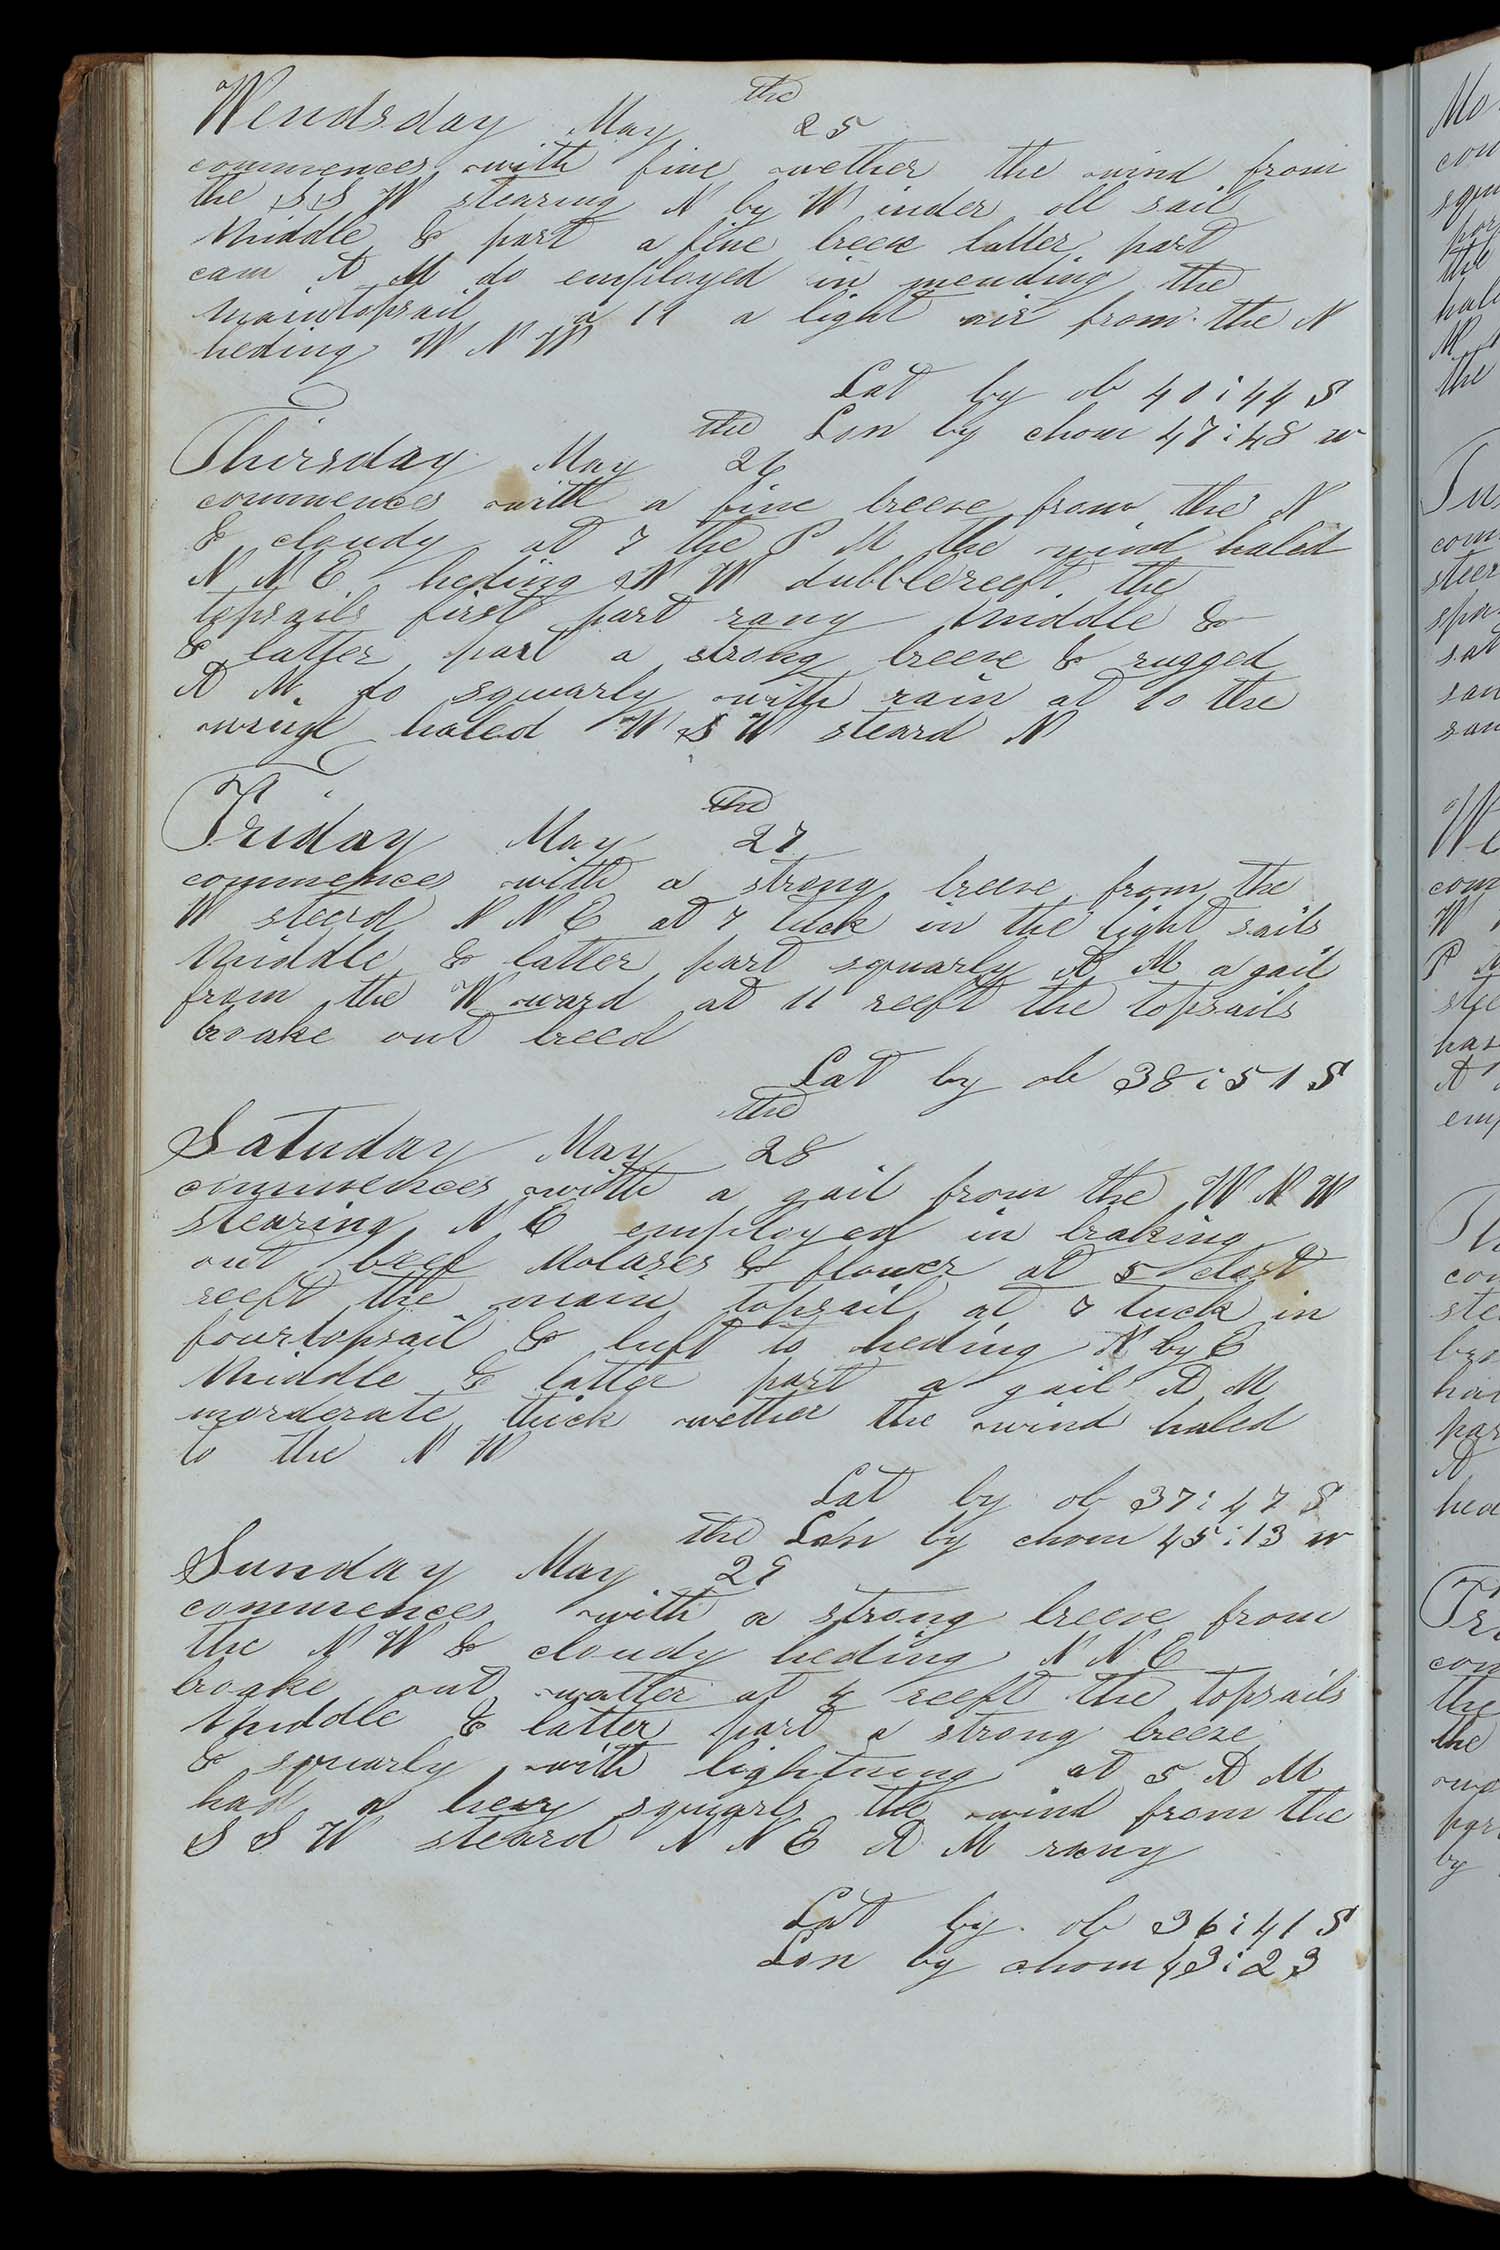 Wendsday May the 25
commences with fine wether the wind from
the S S W stearing N by W inder oll sail
Middle & part a fine breeze latter part
cam A M do employed in mending the
maintopsail a 11 a light air from the N
heding W N W
Lat by ob 40:44 S
Lon by chom 47:48 w
Thirsday May the 26
commences with a fine breeze from the N
& cloudy at 7 the P M the wind haled
N N E heding N W dubblereeft the
topsails first part rany Middle &
& latter part a strong breeze & rugged
A M do squarly with rain at 10 the
wind haled W S W steard N
Friday May the 27
commences with a strong breeze from the
W steerd N N E at 7 tuck in the light sails
Middle & latter part squarly A M a gail
from the W ward at 11 reeft the topsails
broake out breed
Lat by ob 38:51 S
Satuday May the 28
commences with a gail from the W N W
stearing N E employed in braking
out beef Molases & flower at 5 close
reeft the main topsail at 7 tuck in
fourtopsail & luft to heding N by E
Middle & latter part a gail A M
morderate thick wether the wind haled
to the N W
Lat by ob 37:47 S
Lon by chom 45:13 w
Sunday May the 29
commences with a strong breeze from
the N W & cloudy heding N N E
broake out watter at 4 reeft the topsails
Middle & latter part a strong breeze
& squarly with lightning at 5 A M
had a hevy squarls the wind from the
S S W steard N N E A M rany
Lat by ob 36:41 S
Lon by chom 43:23